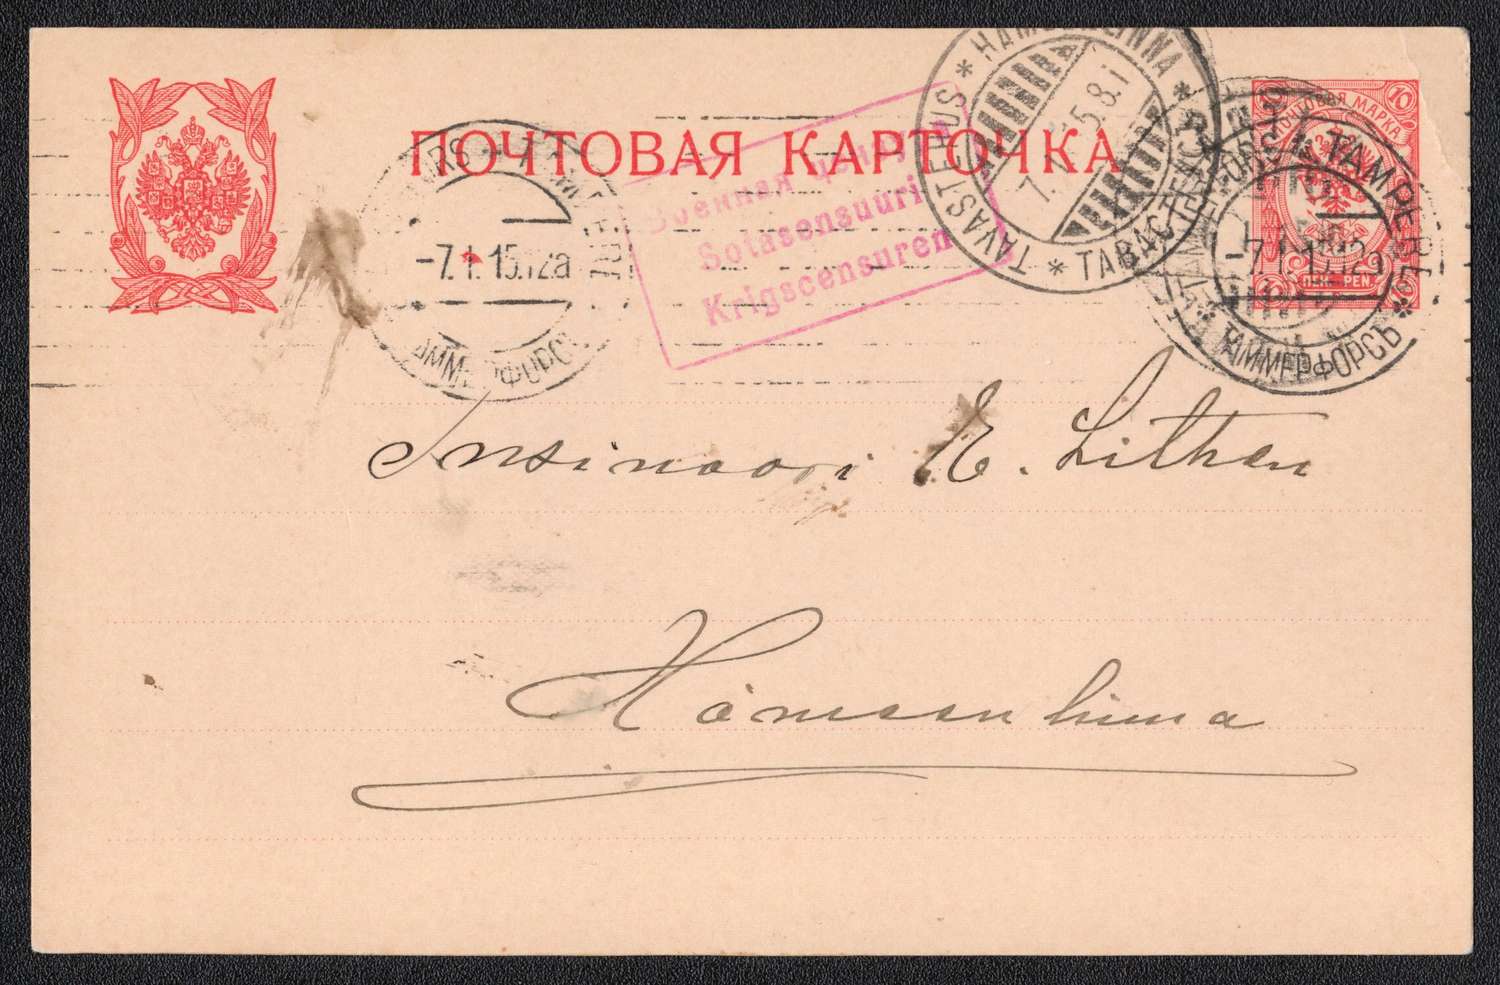 ПОЧТОВАЯ КАРТОЧКА
ПОЧТОВАЯ МАРКА
10
PEN.
TAVASTEHUS * HÄMEENLINNA * ТАВАСТГУСЪ *
7.I.15.8.i
Военная цензура
Sotasensuuri
Krigscensuren
ТАММЕРФОРСЪ
-7.I.15.12a
TAMMERFORS * TAMPERE * ТАММЕРФОРСЪ
-7.I.15.12a
Insinööri E. Lithén
Hämeenlinna